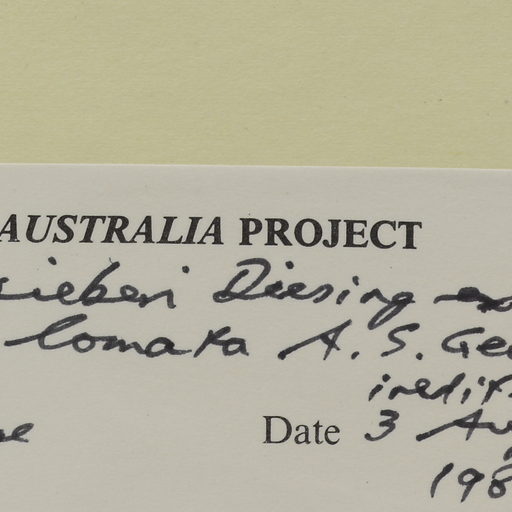 AUSTRALIA PROJECT
sieberi Diesing ex
lomata A. S. Geo
inedit.
Date 3 Au
198